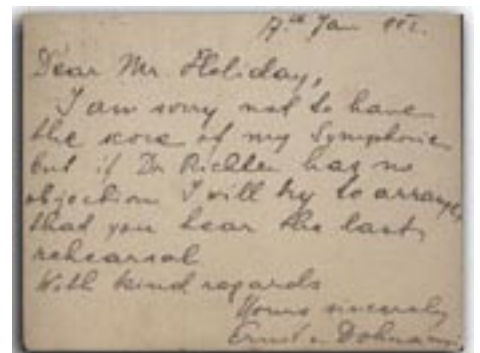 7th Jan
Dear Mr Holiday,
I am sorry not to have
the score of my Symphonie
but if Dr Richter has no
objection I will try to arrange,
that you hear the last
rehearsal
With kind regards
Yours sincerely
Ernst v. Dohnanyi